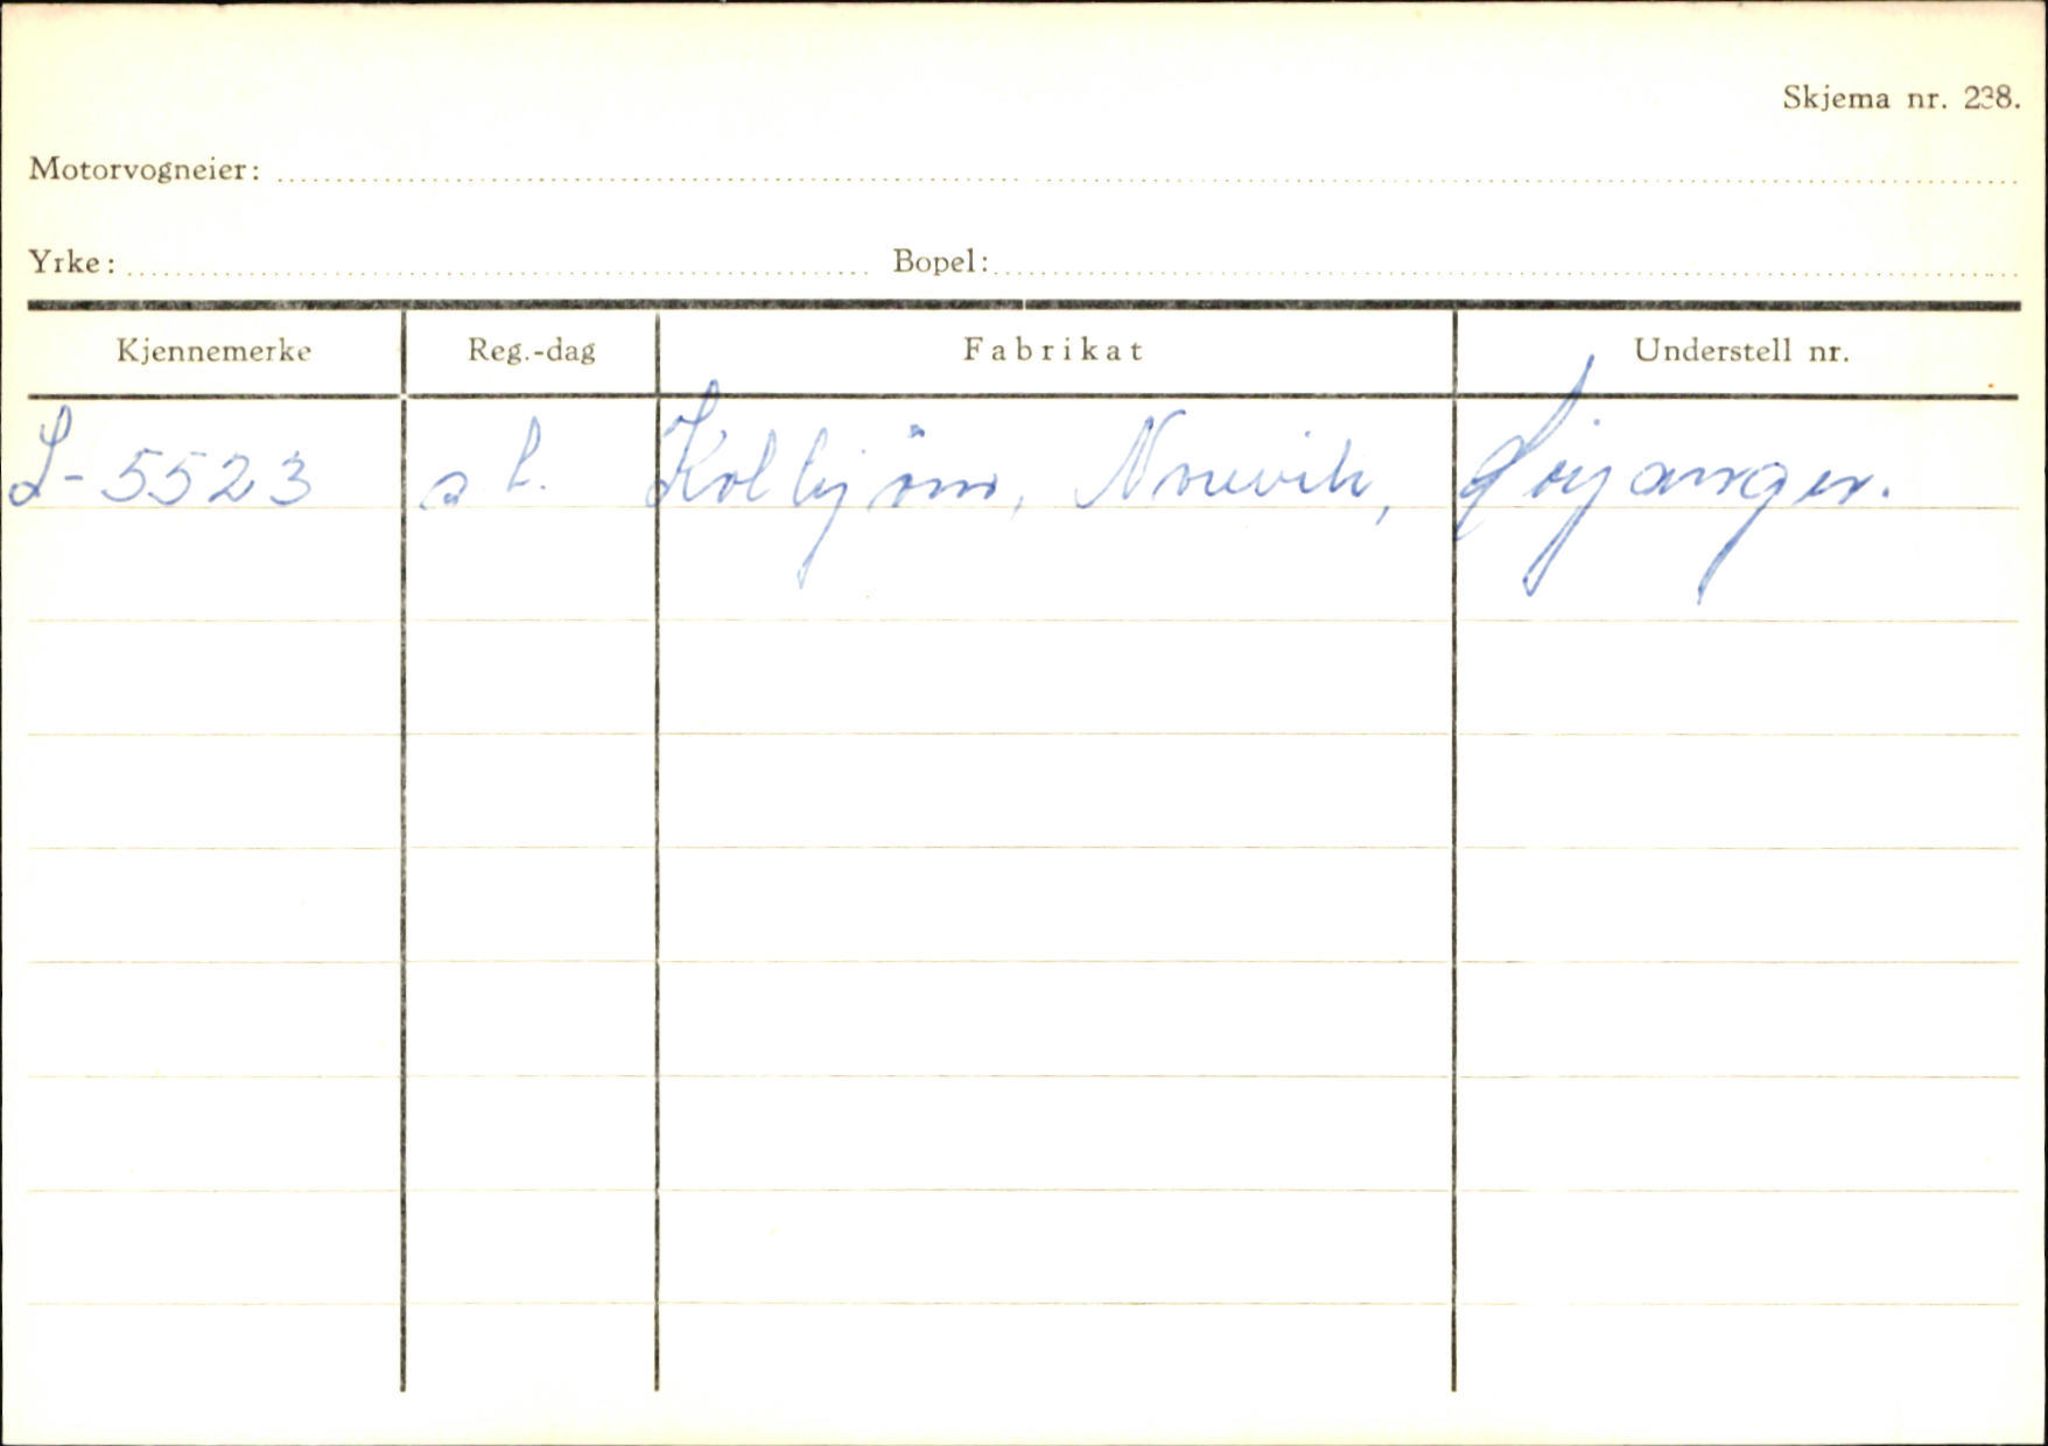 Skjema nr. 238.
Motorvogneier:
Yrke: Bopel:
Kjennemerke Reg.-dag Fabrikat Understell nr.
S-5523 s h. Kolbjörn, Nrevik, Höyanger.